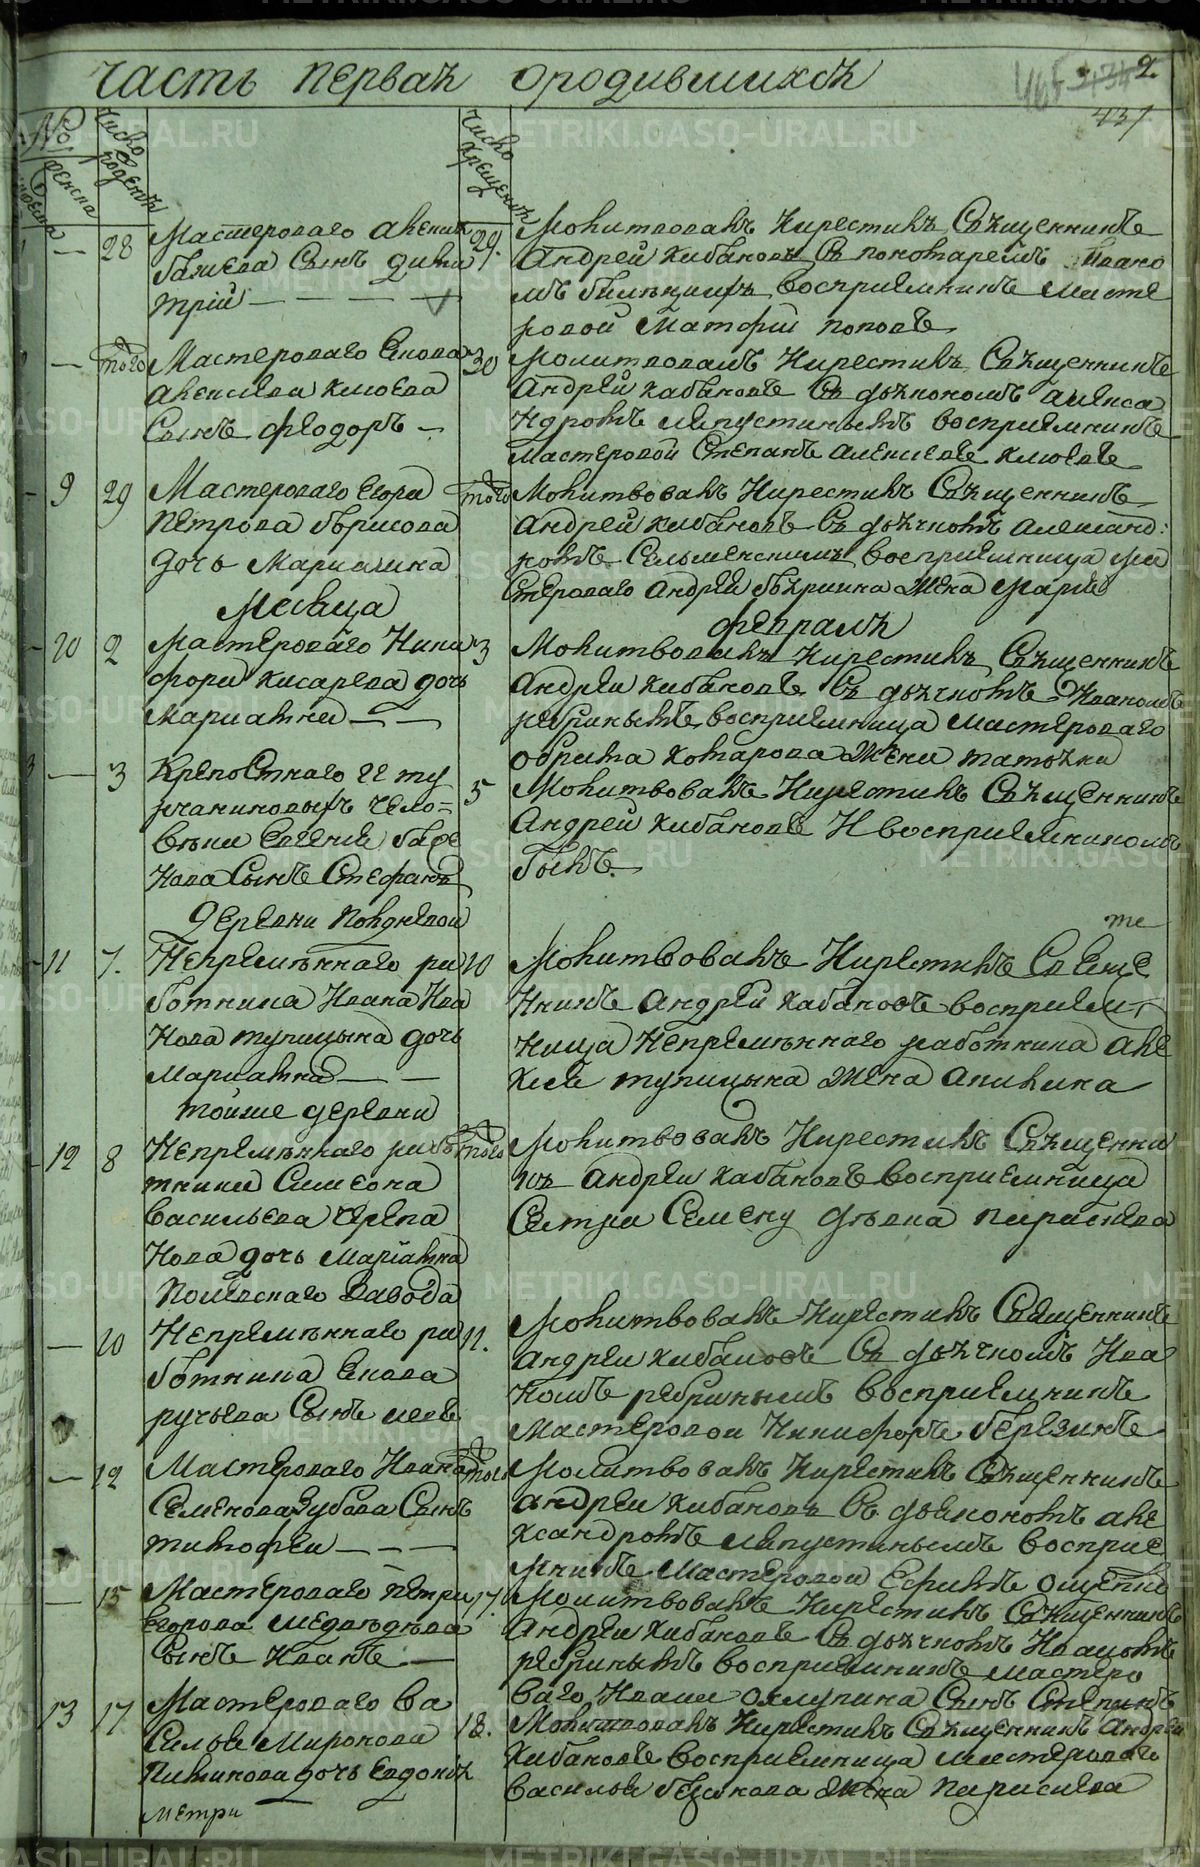 часть перваѧ ородившихсѧ 2.
437
№
число рожденiѧ
число крещенiѧ
женска
28 Мастероваго
сынъ дими
трiй
29. Молитвовалъ икрестилъ Свѧщенникъ
Андрей хабаковъ Съ пономаремъ Ивано
мъ восприемникъ масте
ровой Матфiй поповъ
того Мастероваго Якова
алексиева клюева
Сынъ феодоръ
30 Молитвовалъ икрестилъ Свѧщенникъ
Андрей хабаковъ Съ дьякономъ алекса
ндромъ лепустинымъ восприемникъ
мастеровой Степанъ алексиевъ клюевъ
9 29 Мастероваго Егора
петрова борисова
дочь Мариамна
того Молитвовалъ икрестилъ Свѧщенникъ
андрей хабаковъ Съ дьячкомъ александ:
ромъ Сельменскимъ восприемница ма
стероваго андрея жена марiя
Месѧца февралѧ
10 2 Мастероваго Ники
фора кисарева дочь
Мариамна
3 Молитвовалъ икрестилъ Свѧщенникъ
андрей хабаковъ Съ дьячкомъ Иваномъ
ребринымъ восприемница мастероваго
жена
3 Крепостнаго гг ту
рчаниновыхъ чело=
вѣка Евгения
нова Сынъ Стефанъ
5 Молитвовалъ икрестилъ Свѧщенникъ
Андрей хабаковъ И восприемникомъ
былъ.
Деревни полдневой
11 7. Непремѣннаго ра
ботника Ивана Ива
нова тупицына дочь
Мариамна
10 Молитвовалъ икрестилъ Свѧще
нникъ андрей хабаковъ восприем
ница непремѣннаго работника але
ксея тупицына жена акилина
тойже деревни
12 8 Непремѣннаго рабо
тника Симеона
васильева черепа
нова дочь Марiамна
того Молитвовалъ икрестилъ Свѧщенни
къ андрей хабаковъ восприемница
Сестра Семену дѣвка параскева
полевскаго завода
10 Непремѣннаго ра
ботника Якова
ручьева Сынъ
11. Молитвовалъ икрестилъ Свѧщенникъ
андрей хабаковъ Съ дьячкомъ Ива
номъ ребринымъ восприемникъ
Мастеровой Никифоръ березинъ
12 Мастероваго Ивана
Семенова зубова Сынъ
тимофей
того Молитвовалъ икрестилъ Свѧщенникъ
андрей хабаковъ Съ дьякономъ але
ксандромъ лепустинымъ восприе
мникъ Мастеровой Ефимъ
15 Мастероваго петра
Егорова медведева
Сынъ Иванъ
17. Молитвовалъ икрестилъ Свѧщенникъ
Андрей хабаковъ Съ дьячкомъ Иваномъ
ребринымъ восприемникъ мастеро
ваго Ивана Сынъ Степанъ
13 17 Мастероваго Ва
силья Миронова
дочь Евдокiѧ
18. Молитвовалъ икрестилъ Свѧщенникъ Андрей
хабаковъ восприемница мастероваго
василья жена параскева
метри
METRIKI.GASO-URAL.RU